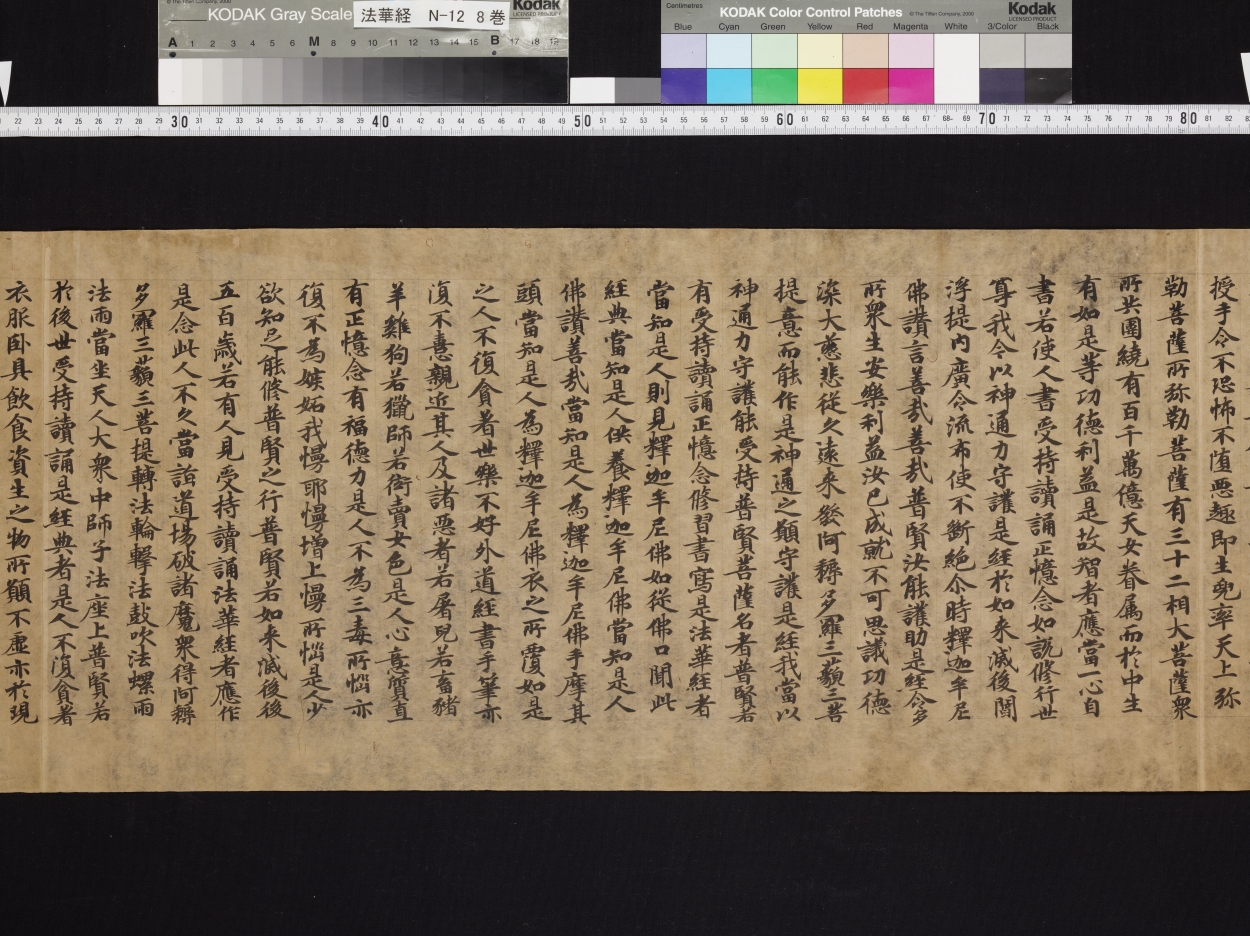 KODAK Gray Scale
法華経 N-12 8巻
Kodak
LICENSED PRODUCT
A 1 2 3 4 5 6 M 8 9 10 11 12 13 14 15 B 17 18 19
Centimetres
KODAK Color Control Patches
© The Tiffen Company, 2000
Kodak
LICENSED PRODUCT
Blue Cyan Green Yellow Red Magenta White 3/Color Black
22 23 24 25 26 27 28 29 30 31 32 33 34 35 36 37 38 39 40 41 42 43 44 45 46 47 48 49 50 51 52 53 54 55 56 57 58 59 60 61 62 63 64 65 66 67 68 69 70 71 72 73 74 75 76 77 78 79 80 81 82
授手令不恐怖不堕悪趣即生兜率天上弥
勒菩薩所弥勒菩薩有三十二相大菩薩衆
所共圍繞有百千萬億天女眷属而於中生
有如是等功德利益是故智者應當一心自
書若使人書受持讀誦正憶念如說修行世
尊我今以神通力守護是經於如来滅後閻
浮提内廣令流布使不斷絶尒時釋迦牟尼
佛讚言善哉善哉普賢汝能護助是經令多
所衆生安樂利益汝已成就不可思議功德
深大慈悲從久遠来發阿耨多羅三藐三菩
提意而能作是神通之願守護是經我當以
神通力守護能受持普賢菩薩名者普賢若
有受持讀誦正憶念修習書寫是法華經者
當知是人則見釋迦牟尼佛如從佛口聞此
經典當知是人供養釋迦牟尼佛當知是人
佛讚善哉當知是人為釋迦牟尼佛手摩其
頭當知是人為釋迦牟尼佛衣之所覆如是
之人不復貪著世樂不好外道經書手筆亦
復不憙親近其人及諸惡者若屠兒若畜猪
羊雞狗若獵師若衒賣女色是人心意質直
有正憶念有福德力是人不為三毒所惱亦
復不為嫉妬我慢耶慢增上慢所惱是人少
欲知足能修普賢之行普賢若如来滅後後
五百歲若有人見受持讀誦法華經者應作
是念此人不久當詣道場破諸魔衆得阿耨
多羅三藐三菩提轉法輪擊法鼓吹法螺雨
法雨當坐天人大衆中師子法座上普賢若
於後世受持讀誦是經典者是人不復貪著
衣服卧具飲食資生之物所願不虛亦於現